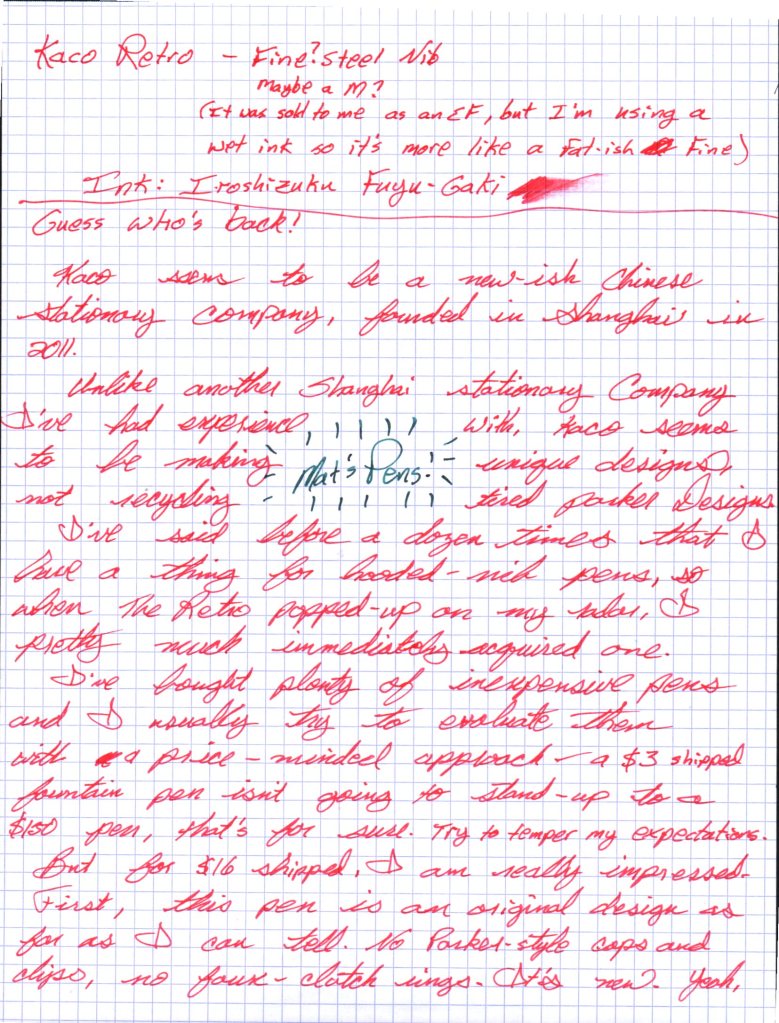 Kaco Retro - Fine? Steel Nib
maybe a M?
(It was sold to me as an EF, but I'm using a
wet ink so it's more like a Fat-ish Fine)
Ink: Iroshizuku Fuyu-Gaki
Guess who's back!
Kaco seems to be a new-ish Chinese
stationary company, founded in Shanghai in
2011.
Unlike another Shanghai stationary Company
I've had experience with, Kaco seems
to be making unique designs,
Mat's Pens.
not recycling tired parker Designs
I've said before a dozen times that I
have a thing for hooded-nib pens, so
when The Retro popped-up on my radar, I
pretty much immediately acquired one.
I've bought plenty of inexpensive pens
and I usually try to evaluate them
with a price-minded approach - a $3 shipped
fountain pen isn't going to stand-up to a
$150 pen, that's for sure. Try to temper my expectations.
But for $16 shipped, I am really impressed.
First, this pen is an original design as
far as I can tell. No Parker-style caps and
clips, no faux-clutch rings. It's new. Yeah,